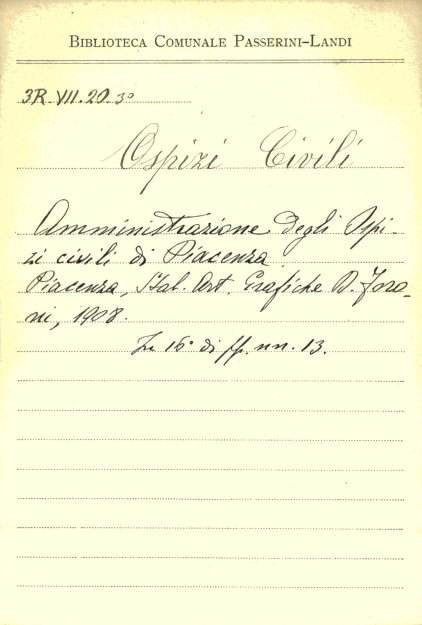 BIBLIOTECA COMUNALE PASSERINI-LANDI
3R. VII. 20. 3°
Ospizi Civili
Amministrazione degli Ospi-
zi civili di Piacenza.
Piacenza, Stab. Art. Grafiche D. Foro-
ni, 1908.
In 16° di pp. nn. 13.